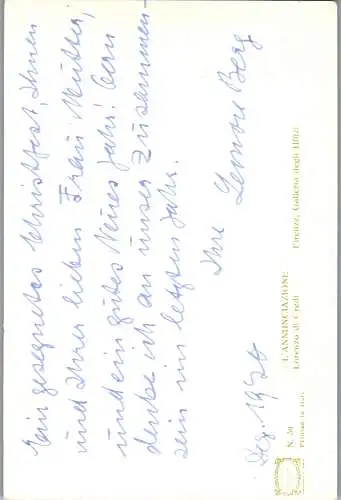 Ein gesegnetes Christfest, Ihnen
und Ihrer lieben Frau Mutter,
und ein gutes Neues Jahr! Gern
denke ich an unser Zusammen-
sein im letzten Jahr.
Ihre Lenore Berg
Dez. 1970
N. 50
PRINTED IN ITALY
L'ANNUNCIAZIONE
Lorenzo di Credi
Firenze, Galleria degli Uffizi